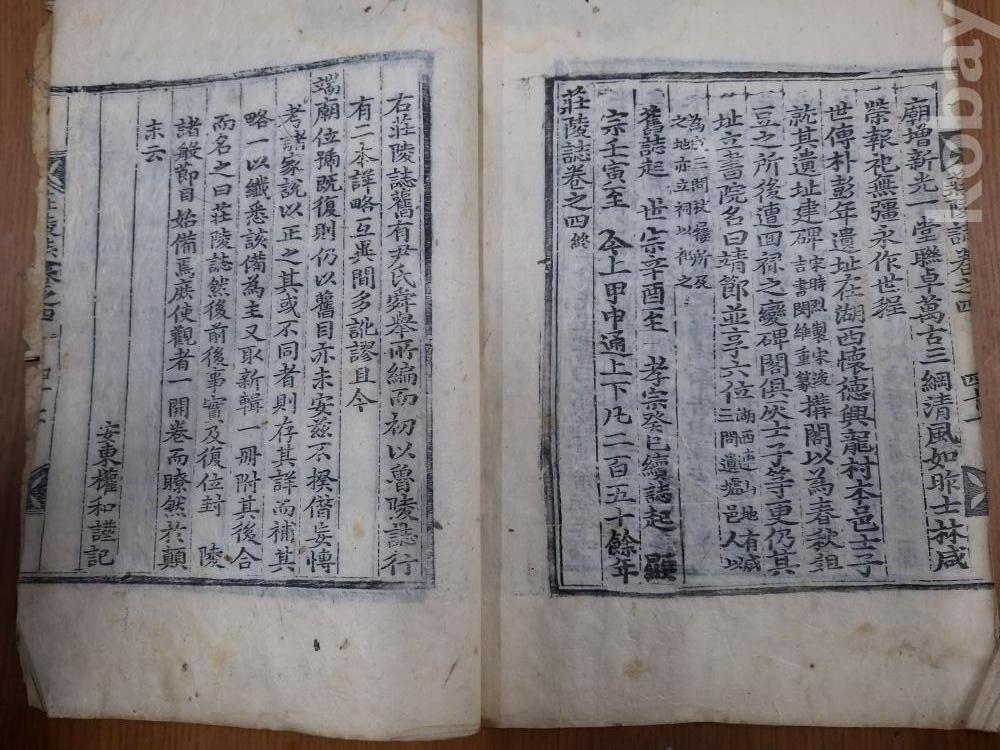 莊陵誌卷之四
廟增新光一堂聯卓萬古三綱清風如昨士林咸
榮報祀無彊永作世程
世傳朴彭年遺址在湖西懷德興龍村本邑士子
就其遺址建碑宋時烈製宋浚吉書閔維重篆搆閣以為春秋俎
豆之所後遭回祿之變碑閣俱灰士子等更仍其
址立書院名曰靖節並享六位湖西連山地有成三問遺墟邑人以
為三問杖屨所及之地亦立祠以祠之
舊誌起 世宗辛酉至 孝宗癸巳續誌起 顯
宗壬寅至 今上甲申通上下凡二百五十餘年
莊陵誌卷之四終
右莊陵誌舊有尹氏舜擧所編而初以魯陵誌行
有二本詳略互異間多訛謬且今
端廟位號旣復則仍以舊目亦未安玆不揆僭妄博
考諸家說以正之其或不同者則存其詳而補其
略一以纖悉該備為主又取新輯一冊附其後合
而名之曰莊陵誌然後前後事實及復位封 陵
諸般節目始備焉庶使觀者一開卷而瞭然於顚
末云
安東權和謹記
kobay